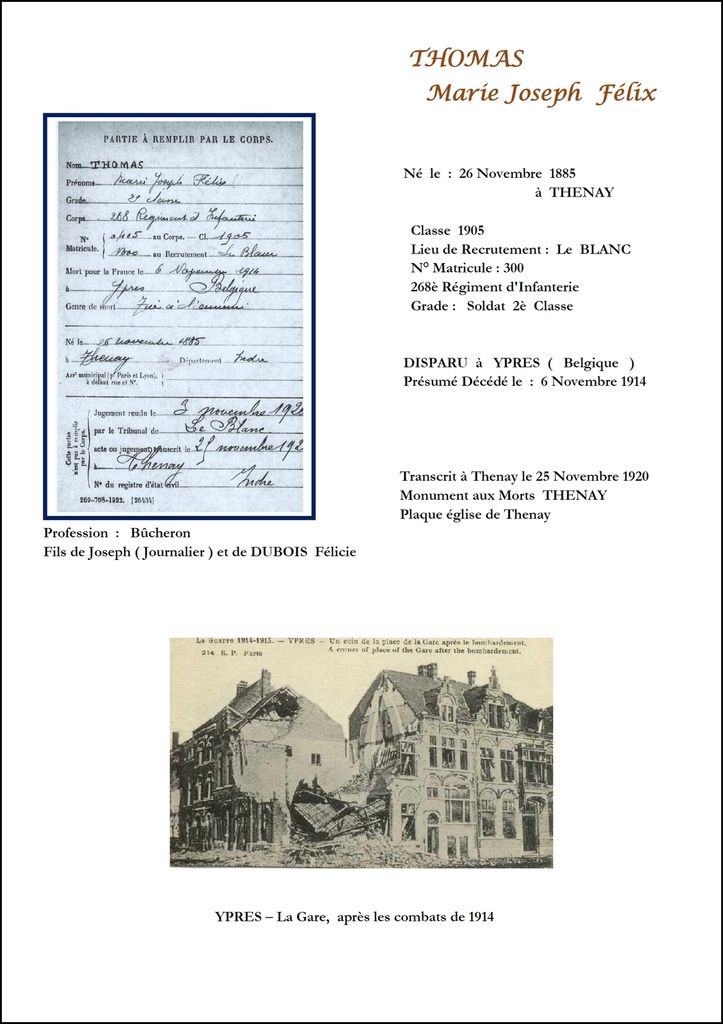 THOMAS
Marie Joseph Félix
PARTIE À REMPLIR PAR LE CORPS.
Nom THOMAS
Prénoms Marie Joseph Félix
Grade 2e classe
Corps 268 Régiment d'Infanterie
N° Matricule. au Corps. — Cl. 1905
au Recrutement Le Blanc
Mort pour la France le 6 Novembre 1914
à Ypres Belgique
Genre de mort Tué à l'ennemi
Né le 26 novembre 1885
à Thenay Département Indre
Arrt municipal (pr Paris et Lyon), à défaut rue et N°.
Cette partie n'est pas à remplir par le Corps.
Jugement rendu le 3 novembre 192
par le Tribunal de Le Blanc
acte ou jugement transcrit le 25 novembre 192
à Thenay
N° du registre d'état civil Indre
269-708-1922. [26434]
Né le : 26 Novembre 1885
à THENAY
Classe 1905
Lieu de Recrutement : Le BLANC
N° Matricule : 300
268è Régiment d'Infanterie
Grade : Soldat 2è Classe
DISPARU à YPRES ( Belgique )
Présumé Décédé le : 6 Novembre 1914
Transcrit à Thenay le 25 Novembre 1920
Monument aux Morts THENAY
Plaque église de Thenay
Profession : Bûcheron
Fils de Joseph ( Journalier ) et de DUBOIS Félicie
La Guerre 1914-1915. — YPRES – Un coin de la place de la Gare après le bombardement.
214 R. P. Paris A corner of place of the Gare after the bombardement.
YPRES – La Gare, après les combats de 1914